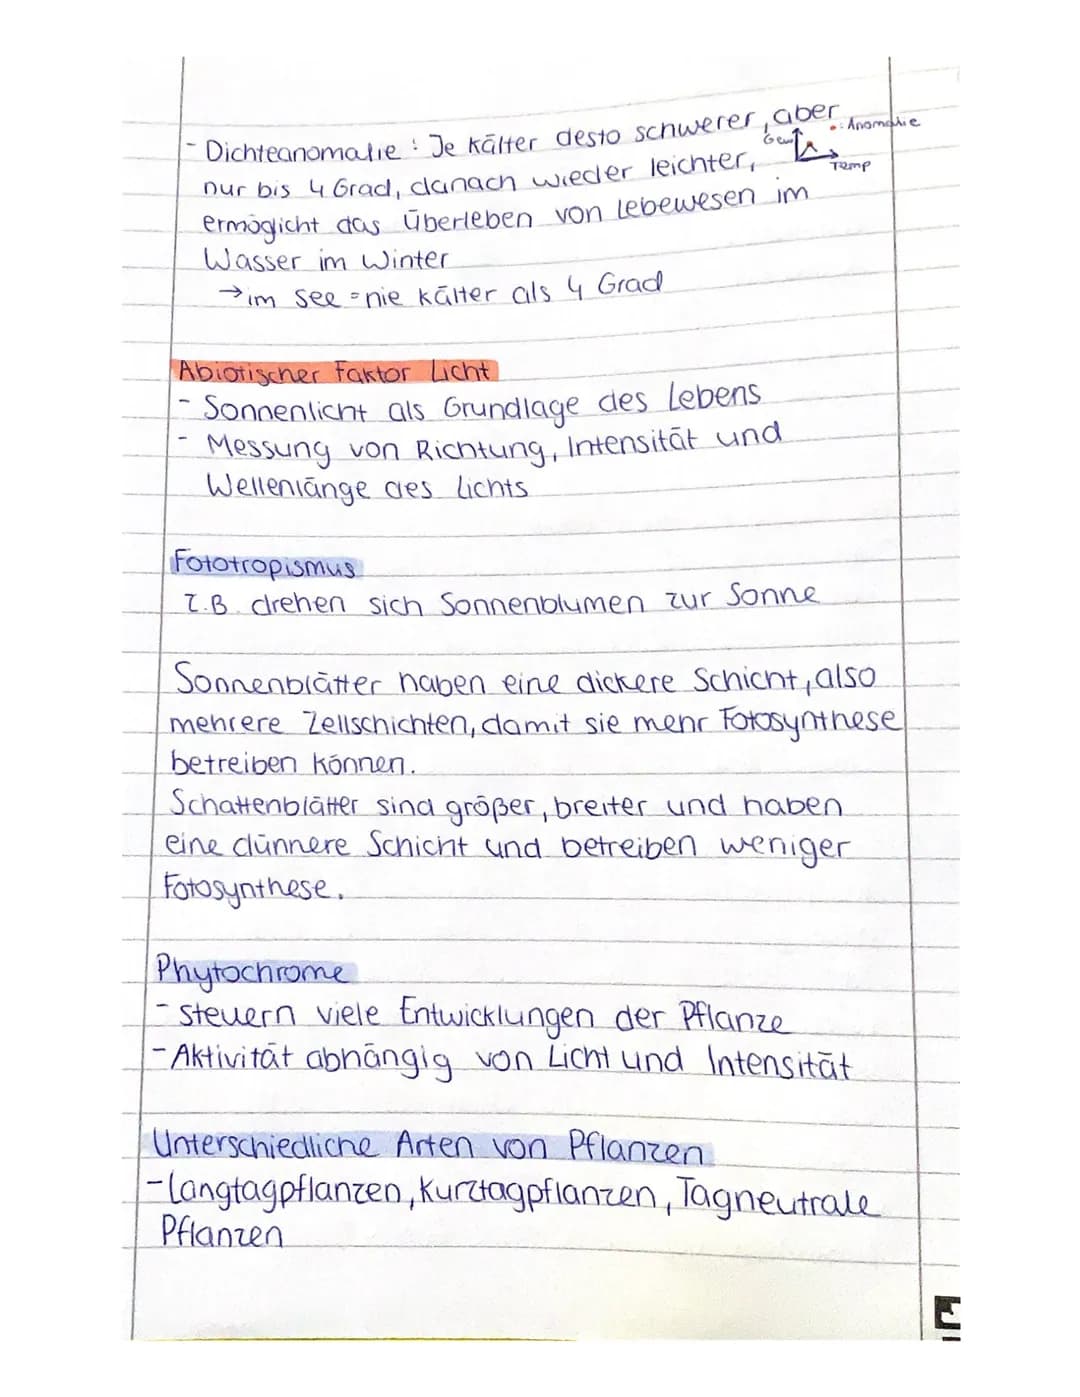 - Dichteanomalie : Je kälter desto schwerer, aber
Gew
• : Anomalie
Temp
nur bis 4 Grad, danach wieder leichter,
ermöglicht das überleben von Lebewesen im
Wasser im Winter
→ im See = nie kälter als 4 Grad
Abiotischer Faktor Licht
- Sonnenlicht als Grundlage des Lebens
- Messung von Richtung, Intensität und
Wellenlänge des Lichts
Fototropismus
z.B. drehen sich Sonnenblumen zur Sonne
Sonnenblätter haben eine dickere Schicht, also
mehrere Zellschichten, damit sie mehr Fotosynthese
betreiben können.
Schattenblätter sind größer, breiter und haben
eine dünnere Schicht und betreiben weniger
Fotosynthese.
Phytochrome
- steuern viele Entwicklungen der Pflanze
- Aktivität abhängig von Licht und Intensität
Unterschiedliche Arten von Pflanzen
- Langtagpflanzen, Kurztagpflanzen, Tagneutrale
Pflanzen